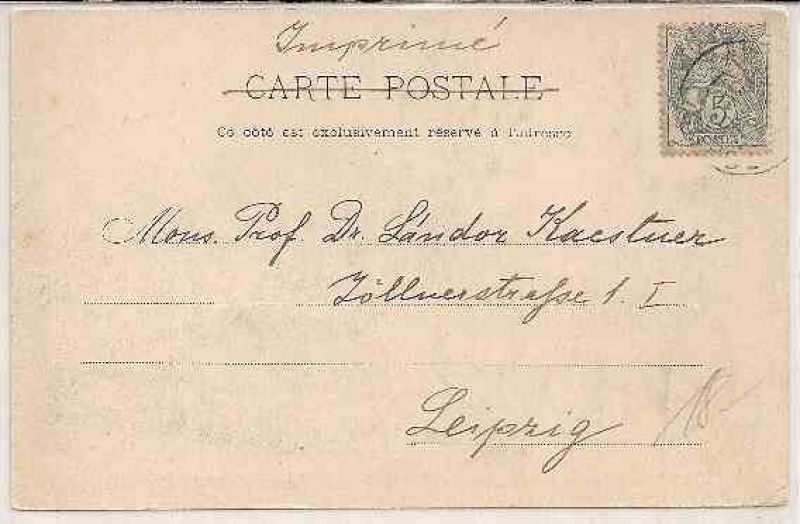 Imprimé
CARTE POSTALE
Ce côté est exclusivement réservé à l'adresse
5
POSTES
Mons. Prof. Dr. Sándor Kaestner
Zöllnerstrasse 1. I
Leipzig